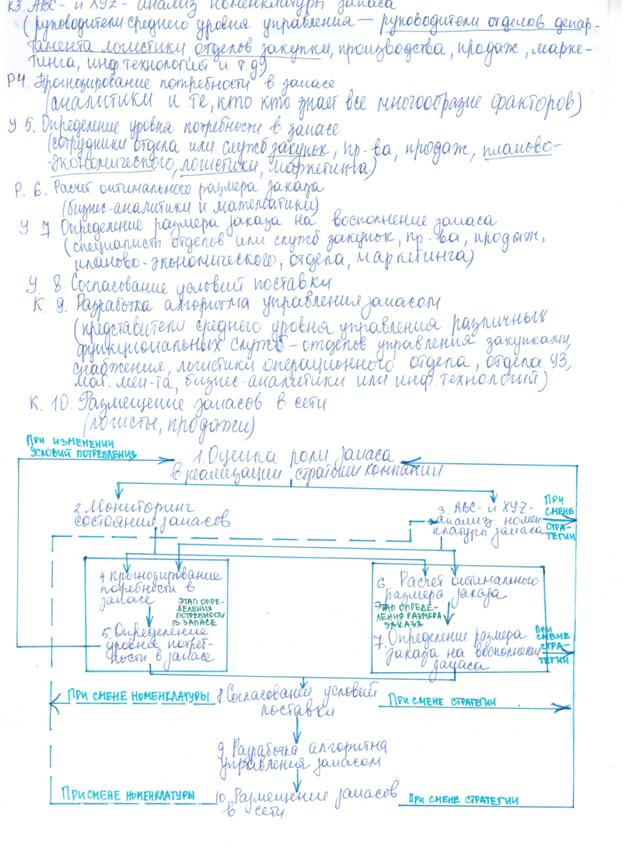 К3. ABC- и XYZ- анализ номенклатуры запаса
(руководители среднего уровня управления — руководители отделов депар-
тамента логистики отделов закупки, производства, продаж, марке-
тинга, инф. технологий и т.д)
Р4. Прогнозирование потребности в запасе
(аналитики и те, кто кто знает все многообразие факторов)
У 5. Определение уровня потребности в запасе
(сотрудники отдела или служб закупок, пр-ва, продаж, планово-
экономического, логистики, маркетинга)
Р. 6. Расчет оптимального размера заказа
(бизнес-аналитики и математики)
У 7. Определение размера заказа на восполнение запаса
(специалист отделов или служб закупок, пр-ва, продаж,
планово-экономического, отдела, маркетинга)
У. 8 Согласование условий поставки
К. 9. Разработка алгоритма управления запасом
(представители среднего уровня управления различных
функциональных служб – отделов управления закупками,
снабжения, логистики операционного отдела, отдела УЗ,
мат. мен-та, бизнес-аналитики или инф. технологий)
К. 10. Размещение запасов в сети
(логисты, продажи)
ПРИ ИЗМЕНЕНИИ
УСЛОВИЙ ПОТРЕБЛЕНИЯ
1. Оценка роли запаса
в реализации стратегии компании
2. Мониторинг
состояния запасов
3. ABC- и XYZ-
анализ номен-
клатуры запаса
ПРИ
СМЕНЕ
СТРА-
ТЕГИИ
4. Прогнозирование
потребности в
запасе
ЭТАП ОПРЕ-
ДЕЛЕНИЯ
ПОТРЕБНОСТИ
В ЗАПАСЕ
5. Определение
уровня потреб-
ности в запасе
6. Расчет оптимального
размера заказа
ЭТАП ОПРЕДЕ-
ЛЕНИЯ РАЗМЕРА
ЗАКАЗА
7. Определение размера
заказа на восполнение
запаса
ПРИ
СМЕНЕ
СТРА-
ТЕГИИ
ПРИ СМЕНЕ НОМЕНКЛАТУРЫ
8. Согласование условий
поставки
ПРИ СМЕНЕ СТРАТЕГИИ
9. Разработка алгоритма
управления запасом
ПРИ СМЕНЕ НОМЕНКЛАТУРЫ
10. Размещение запасов
в сети
ПРИ СМЕНЕ СТРАТЕГИИ